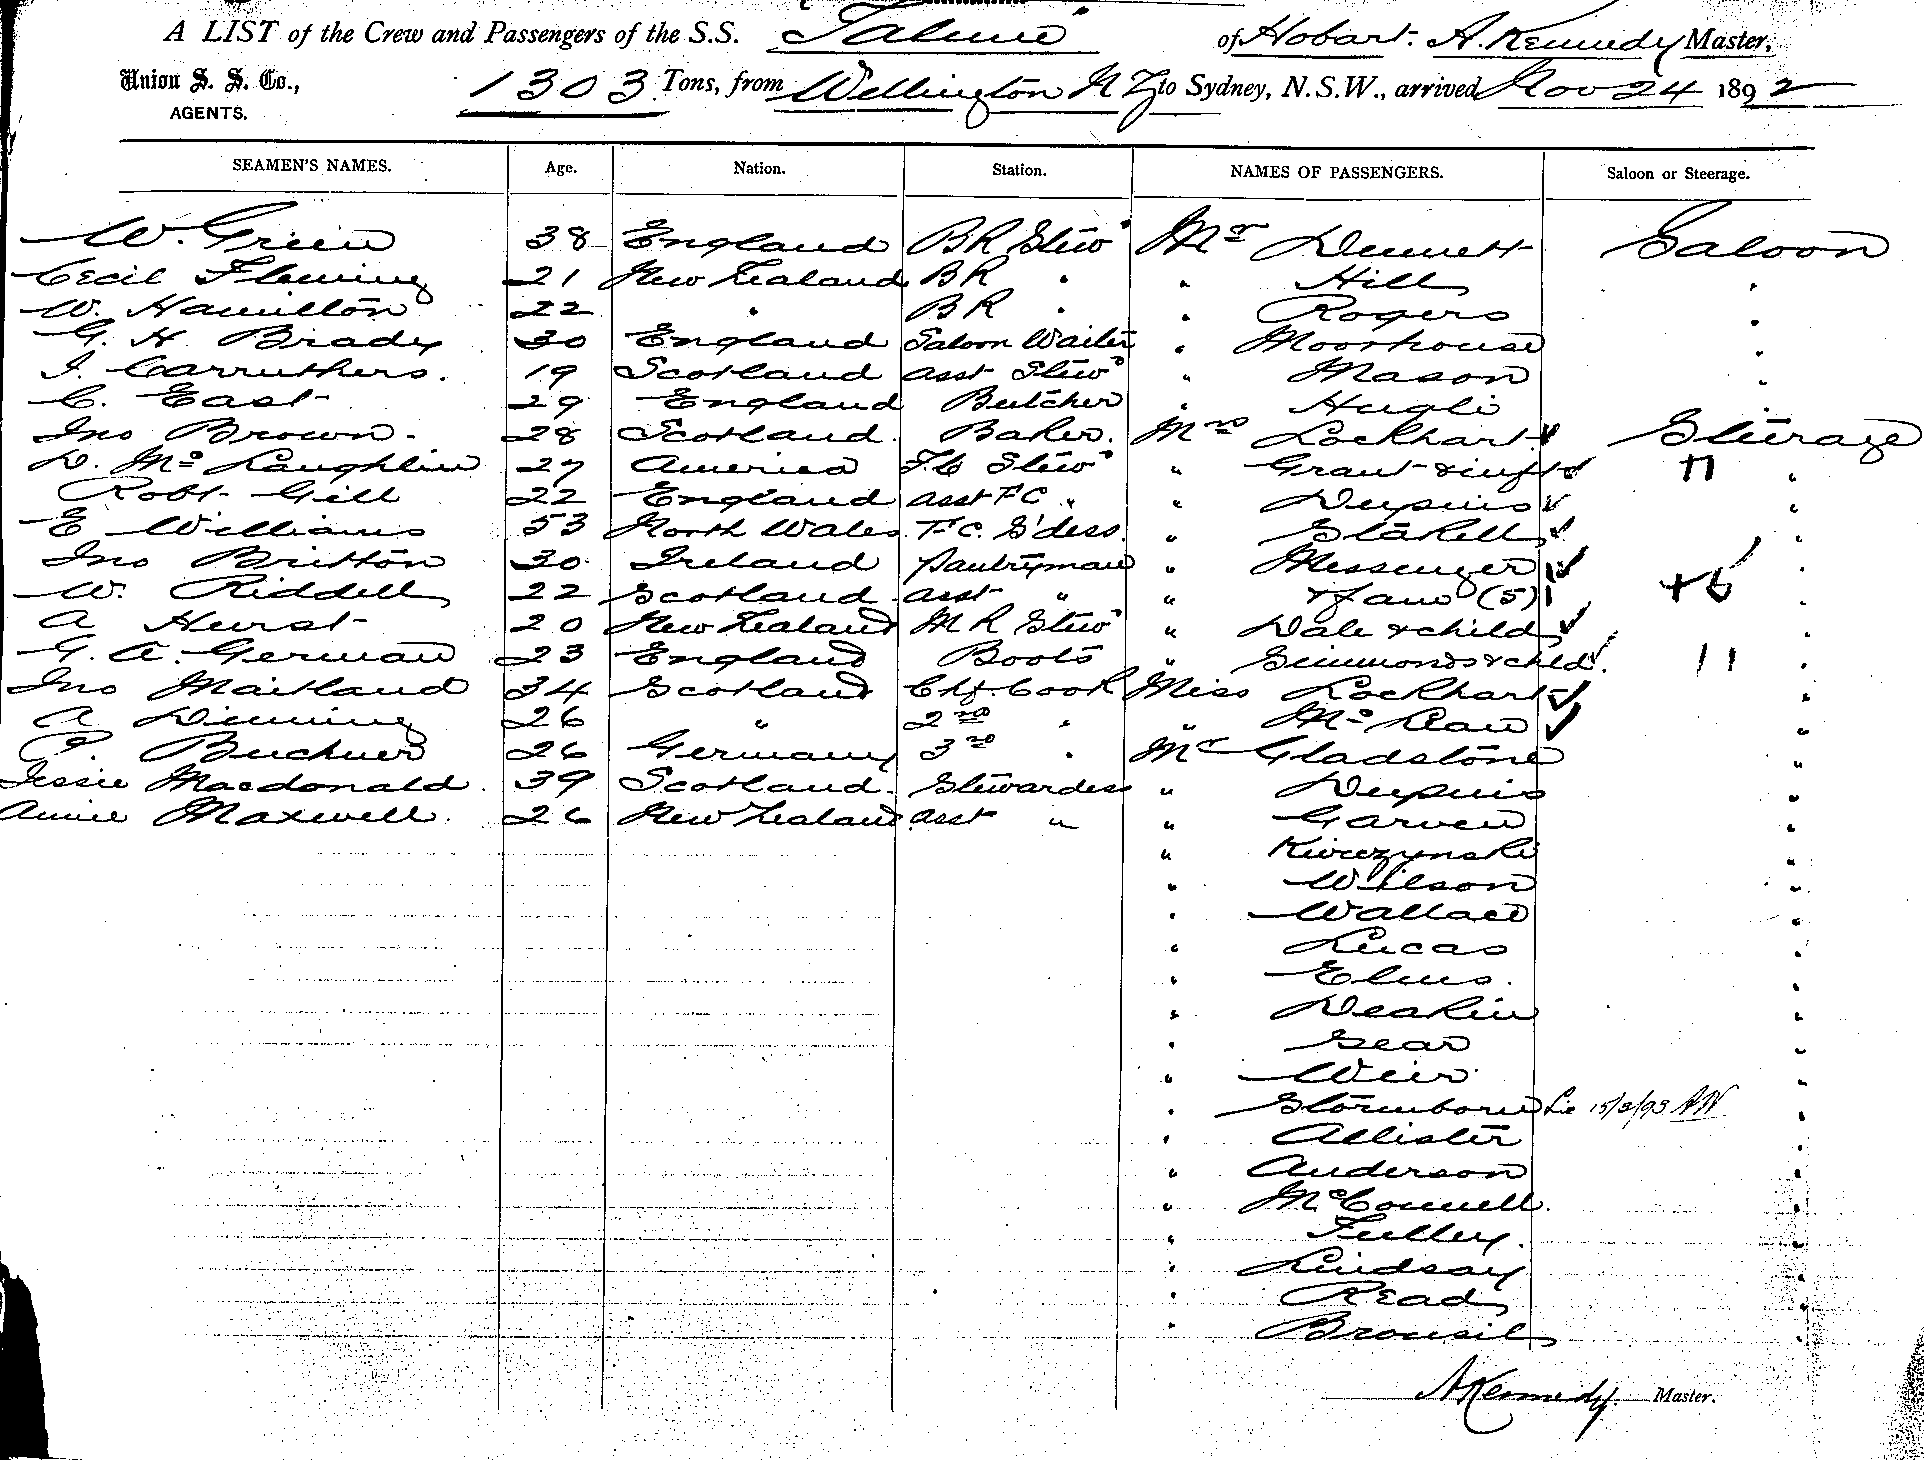 A LIST of the Crew and Passengers of the S.S. of Hobart. A. Kennedy Master.
Union S. S. Co., 1303 Tons, from Wellington N Z to Sydney, N.S.W., arrived Nov 24 1892
AGENTS.
SEAMEN'S NAMES. Age. Nation. Station. NAMES OF PASSENGERS. Saloon or Steerage.
W. Green 38 England BR Stew Mr Dennett Saloon
Cecil Fleming 21 New Zealand BR " " Hill "
W. Hamilton 22 " BR " " Rogers "
G. H. Brady 30 England Saloon Waiter " Moorhouse
J. Carruthers. 19 Scotland asst Stew " Mason "
C. East 29 England Butcher " "
Jno Brown. 28 Scotland. Baker. Mrs Lockhart Steerage
D. Mc Laughlin 27 America F.C Stew " Grant & inft 11 "
Robt Gill 22 England asst F C " " Dupuis
E Williams 53 North Wales F.C. S'dess. " "
Jno Britton 30 Ireland Pantryman " Messenger
W. Riddell 22 Scotland asst " " & fam (5) "
A Hurst 20 New Zealand M R Stew " Dale & child
G. A. German 23 England Boots " Simmonds & child. 11 "
Jno Maitland 34 Scotland Chf. Cook Miss Lockhart "
A 26 " 2nd " " Mc Lean "
P. Buchner 26 Germany 3rd " Mr Gladstone "
Jessie Macdonald. 39 Scotland. Stewardess " Dupuis "
Annie Maxwell. 26 New Zealand asst " " Garven "
" "
" Wilson "
" Wallace "
" Lucas "
" Elms. "
" Deakin "
" Gear "
" Weir "
" 15/3/93 "
" Allister "
" Anderson "
" McConnell. "
" Tulley. "
" Lindsay "
" Read "
" "
A Kennedy. Master.